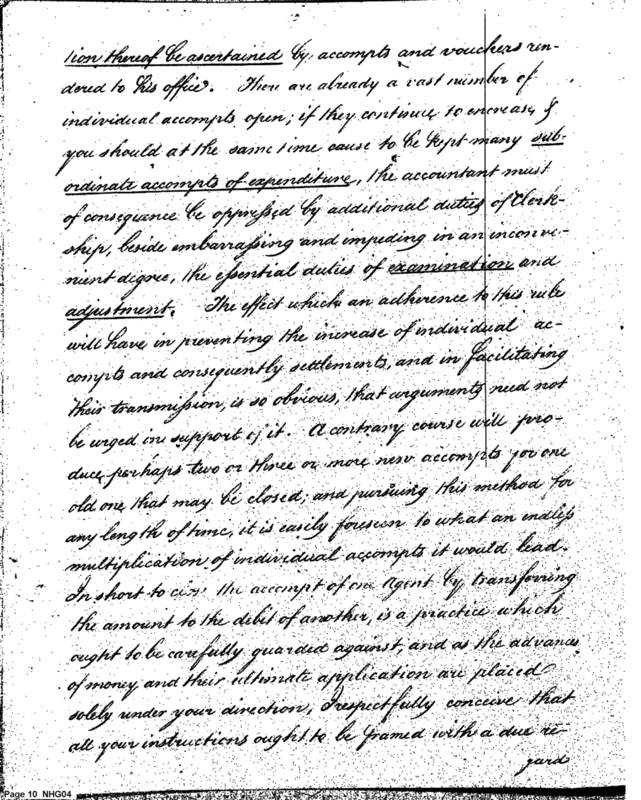 tion thereof be ascertained by, accompts and vouchers ren-
dered to his office. There are already a vast number of
individual accompts open; if they continue to encrease, &
you should at the same time cause to be kept many sub-
ordinate accompts of expenditure, the accountant must
of consequence be oppressed by additional duties of Clerk-
ship, beside embarrassing and impeding in an inconve-
nient degree, the essential duties of examination and
adjustment. The effect which an adherence to this rule
will have in preventing the increase of individual ac-
compts and consequently settlements, and in facilitating
their transmission, is so obvious, that arguments need not
be urged in support of it. A contrary course will pro-
duce perhaps two or three or more new accompts for one
old one that may be closed; and pursuing this method for
any length of time, it is easily foreseen to what an endless
multiplication of individual accompts it would lead.
In short to the accompt of one Agent by transferring
the amount to the debit of another, is a practice which
ought to be carefully guarded against, and as the advances
of money and their ultimate application are placed
solely under your direction, I respectfully conceive that
all your instructions ought to be framed with a due re-
gard
Page 10 NHG04